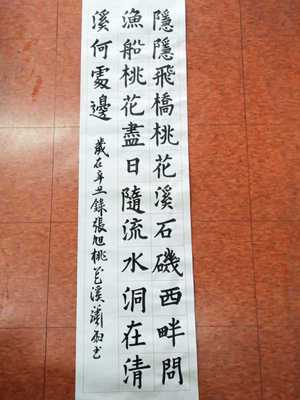 隱隱飛橋桃花溪石磯西畔問
漁船桃花盡日隨流水洞在清
溪何處邊
歲在辛丑錄張旭桃花溪蕭雨书